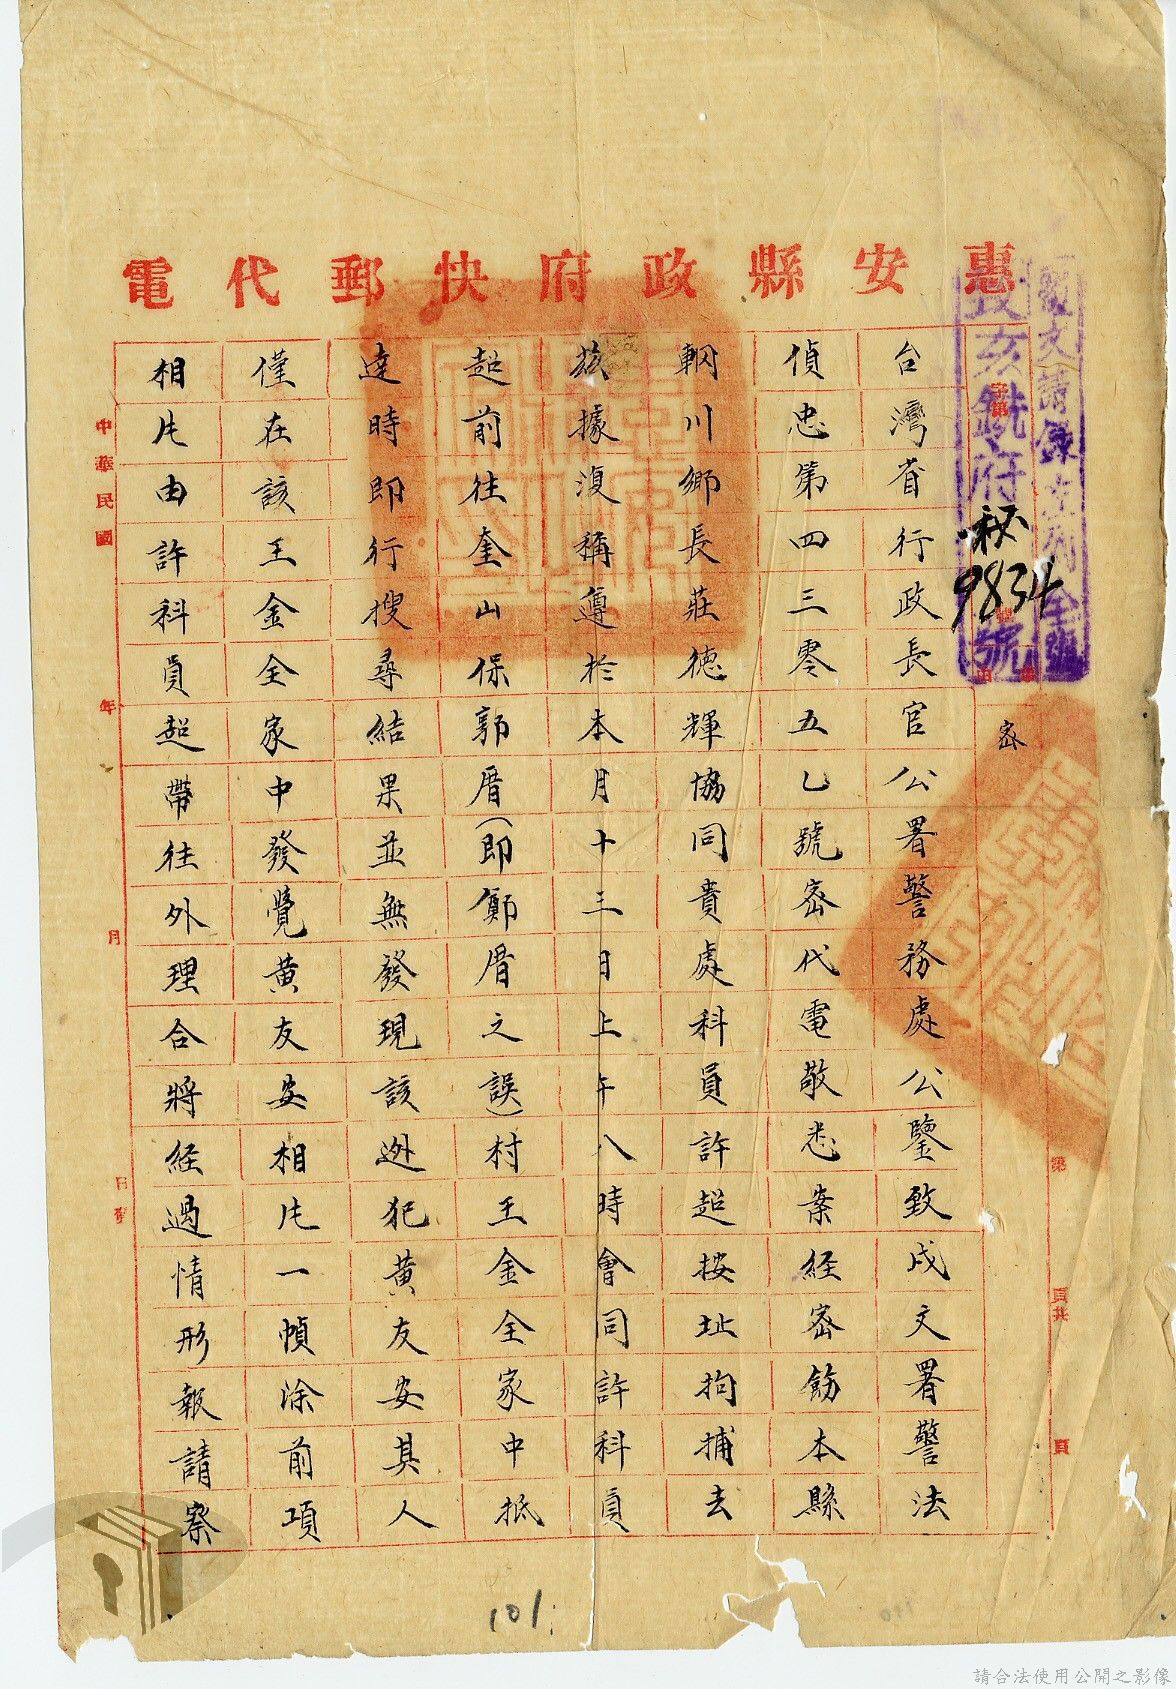 惠安縣政府快郵代電
覆文請錄全銜全號
亥銑府
秘
9834
號
字第
密
第
頁共
頁
台灣省行政長官公署警務處公鑒致戌文署警法
偵忠第四三零五乙號密代電敬悉案經密飭本縣
輞川鄉長莊德輝協同貴處科員許超按址拘捕去
茲據復稱遵於本月十三日上午八時會同許科員
超前往奎山保郭厝(即鄭厝之誤)村王金全家中抵
達時即行搜尋結果並無發現該逃犯黃友安其人
僅在該王金全家中發覺黃友安相片一幀除前項
相片由許科員超帶往外理合將經過情形報請察
中華民國
年
月
日發
101
請合法使用公開之影像